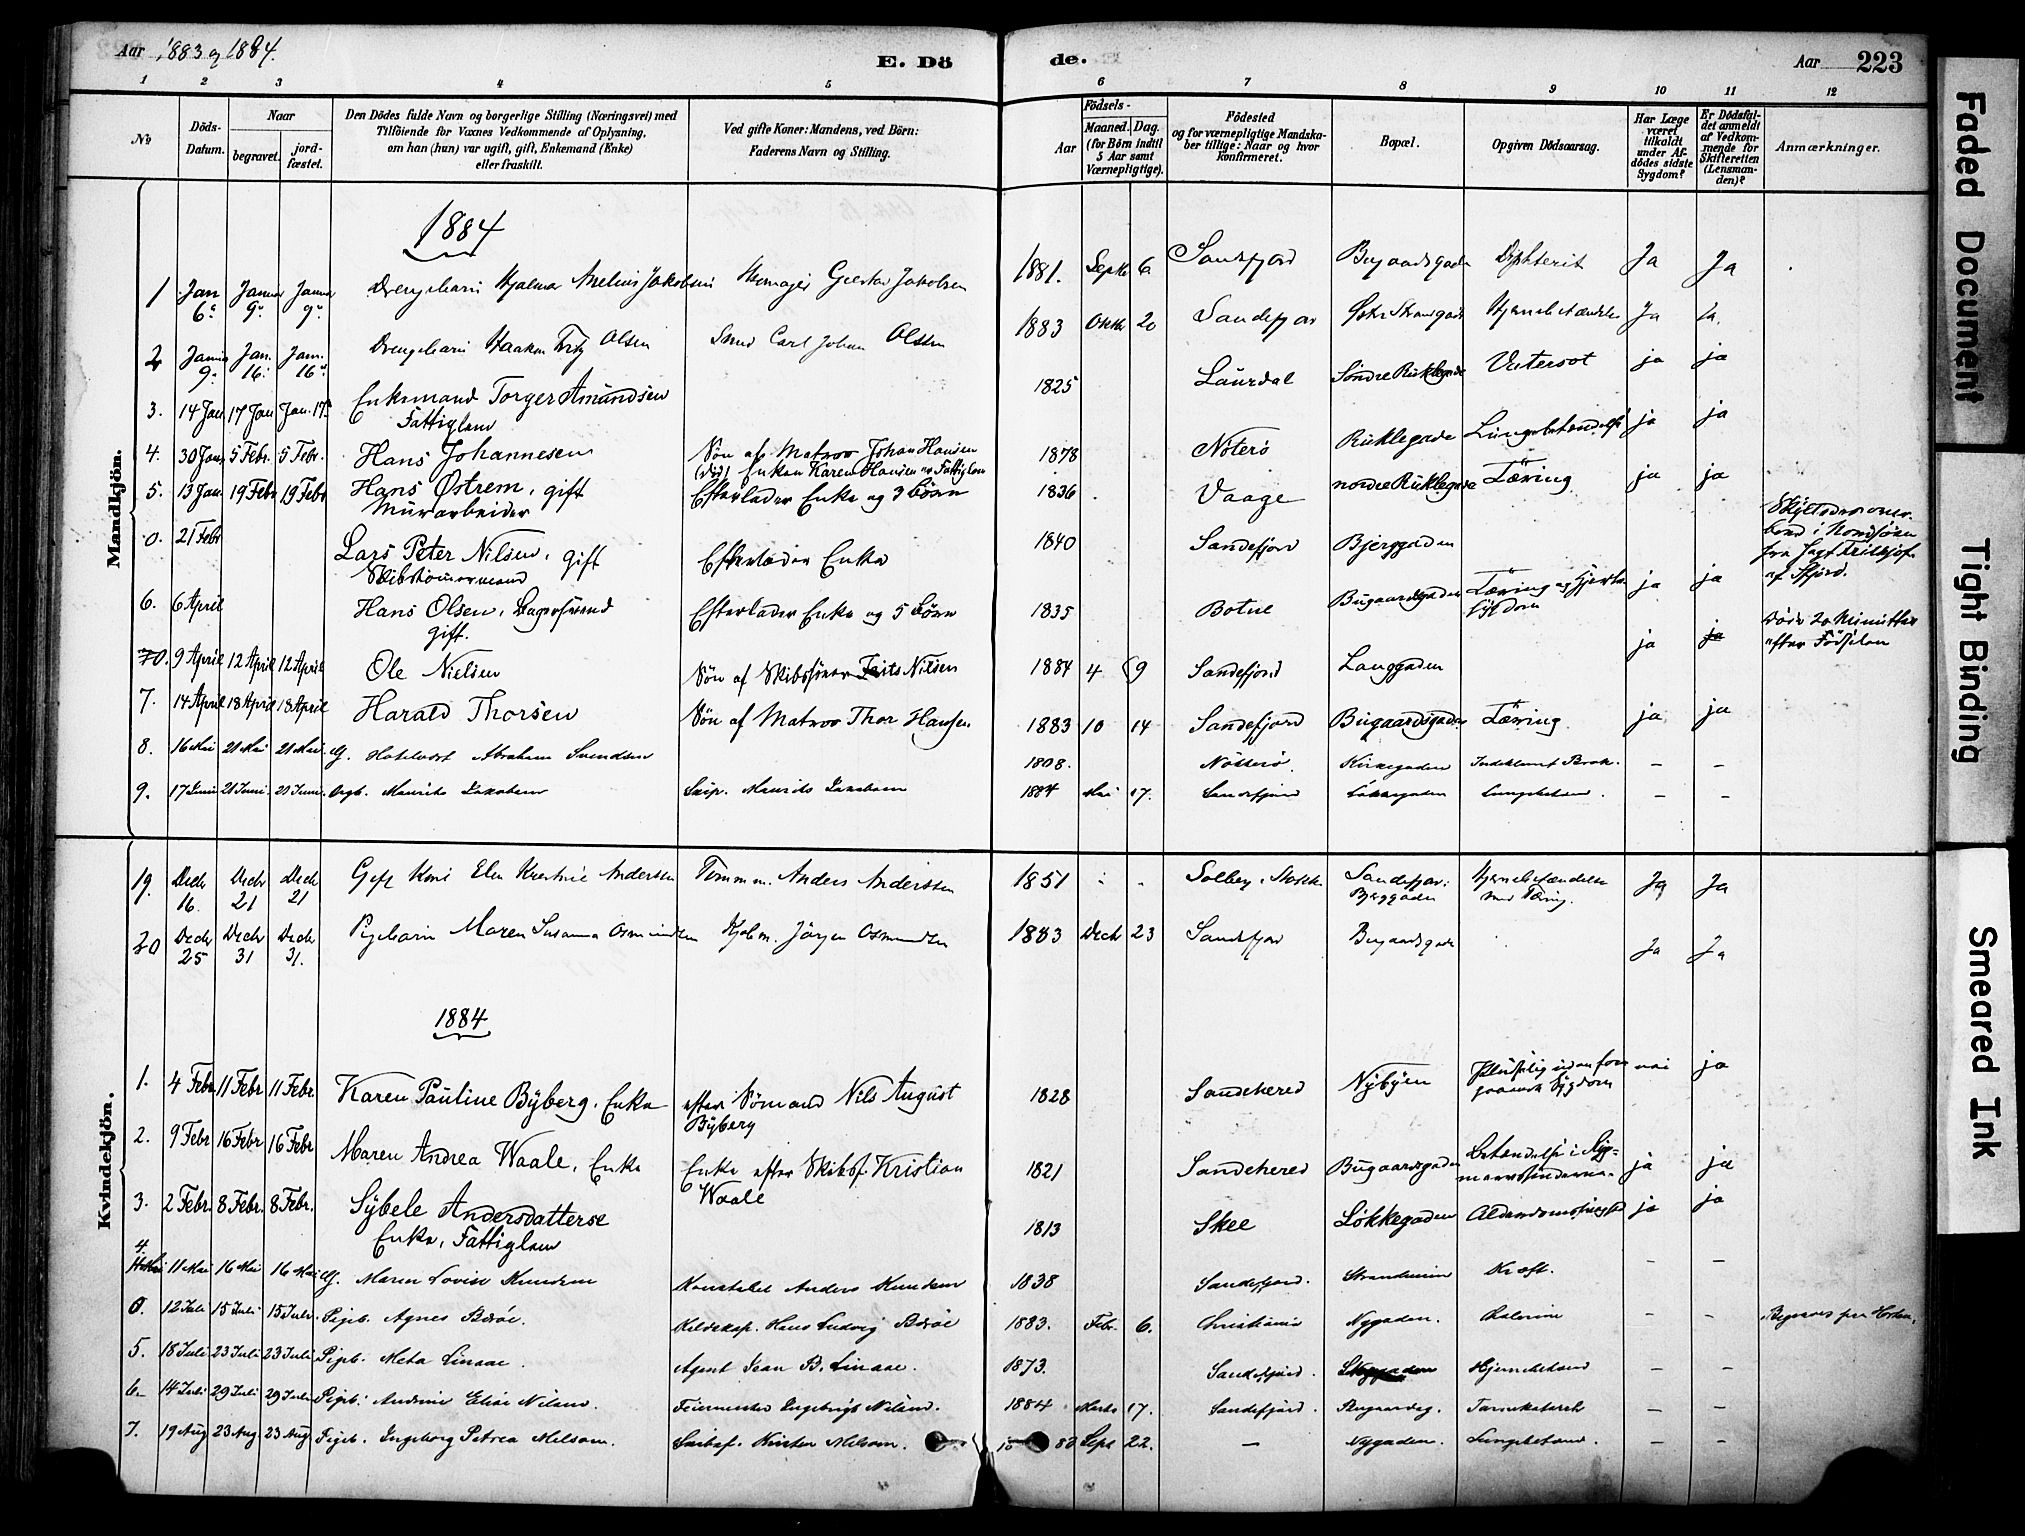 Aar 1883 og 1884.
E. Dö
de.
Aar 223
1 2 3 4 5 6 7 8 9 10 11 12
No
Döds-Datum.
Naar
begravet.
jord-fæstet.
Den Dödes fulde Navn og borgerlige Stilling (Næringsvei) med
Tilföiende for Voxnes Vedkommende af Oplysning,
om han (hun) var ugift, gift, Enkemand (Enke)
eller fraskilt.
Ved gifte Koner: Mandens, ved Börn:
Faderens Navn og Stilling.
Födsels-
Aar
Maaned. Dag.
(for Börn indtil
5 Aar samt
Værnepligtige).
Födested
og for værnepligtige Mandska-
ber tillige: Naar og hvor
konfirmeret.
Bopæl.
Opgiven Dödsaarsag.
Har Læge
været
tilkaldt
under Af-
dödes sidste
Sygdom?
Er Dödsfal-
det anmeldt
af Vedkom-
mende for
Skifteretten
(Lensman-
den)?
Anmærkninger.
Mandkjön.
1884
1 Jan 6 Januar 9 Januar 9 Drengebarn Hjalmar Jakobsen Gustav Jakobsen 1881. Septb 6 Sandefjord Bugaardsgaden Diphterit Ja Ja
2 Januar 9 Jan. 16 Jan. 16 Drengebarn Haakon Olsen Smed Carl Johan Olsen 1883 Oktbr 20 Sandefjord Hjernebetændelse Ja Ja
3. 14 Jan 17 Jan Jan. 17 Enkemand Torger Amundsen Fattiglem 1825 Laurdal Söndre Ruklegade Vatersot ja ja
4. 30 Jan 5 Febr. 5 Febr. Hans Johannesen Sön af Matros Johan Hansen (död) Enken Karen Hansen er Fattiglem 1878 Nöterö Ruklegade Lungebetændelse ja ja
5. 13 Jan 19 Febr 19 Febr Hans Östrem, gift Murarbeider Efterlader Enke og 3 Börn 1836 Vaage nordre Ruklegade Tæring ja ja
0. 21 Febr Lars Peter Nilsen, gift Skibstömermand Efterlader Enke 1840 Sandefjord Bjerggaden
bord i Nordsöen
fra Jagt Frithjof
af Sfjord.
6. 6 April Hans Olsen, gift. Efterlader Enke og 5 Börn 1835 Botne Bugaardsgaden Tæring og Hjerte sygdom ja ja
70. 9 April 12 April 12 April Ole Nielsen Sön af Nilsen 1884 4 9 Sandefjord Langgaden ja ja döde 20 Minutter efter Födselen
7. 14 April 18 April 18 April Harald Thorsen Sön af Matros Thor Hansen 1883 10 14 Sandefjord Bugaardsgaden Tæring ja ja
8. 16 Mai 21 Mai 21 Mai G. Hotelvert Abraham Svendsen 1808. Nötterö. Kirkegaden Indeklemt Brok. – –
9. 17 Juni 21 Juni. 21 Juni. Dgb. Maurits Jakobsen Skip. Maurits Jakobsen 1884 Mai 17. Sandefjord Lökkegaden Lungebetænd. – –
Kvindekjön.
19. Decbr 16. Decbr 21 Decbr 21 Gift Kone Andersen Tömm. Anders Andersen 1851 Solberg i Stokke Sandefjord Bjerggaden Hjernebetændelse med Tæring. Ja Ja
20 Decbr 25 Decbr 31 Decbr 31. Pigebarn Maren Susanna Osmundsen Kjöbm. Jörgen Osmundsen 1883 Decb 23 Sandefjord Bugaardsgade Ja Ja
1884
1. 4 Febr 11 Febr 11 Febr. Karen Pauline Byberg, Enke efter Sömand Nils August Byberg 1828 Sandehered Nybyen Pludselig uden foregaaende Sygdom nei ja
2. 9 Febr 16 Febr 16 Febr. Maren Andrea Waale, Enke Enke efter Skibsf. Kristian Waale 1821 Sandehered Bugaardsgaden Betændelse i ja ja
3. 2 Febr. 8 Febr. 8 Febr. Sybele Andersdatter Enke, Fattiglem 1813 Skee Lökkegaden ja ja
4. 11 Mai 16 Mai 16 Mai G. Maren Lovise Knudsen Konstabel Anders Knudsen 1838 Sandefjord. Kræft. – –
0. 12 Juli 15 Juli 15 Juli. Pigeb. Agnes Bröe. Hans Ludvig Bröe 1883. Febr. 6. Christiania Nygaden. Kolerine – – Begraves paa Horten.
5. 18 Juli 23 Juli 23 Juli Pigb. Meta Linaae. Agent Jean B. Linaae. 1873. Sandefjord. Hjernebetænd – –
6. 14 Juli 29 Juli 29 Juli Pigb. Andrine Elise Nilsen. Feiermester Ingebrigt Nilsen. 1884 Marts 17. Sandefjord. Bugaardsg. Tarmkatarrh – –
7. 19 Aug 23 Aug 23 Aug Pigeb. Ingeborg Petrea Melsom. Skibsf. Melsom. 1883 Sept 22. – Nygaden. Lungebetænd. – –
Faded Document
Tight Binding
Smeared Ink